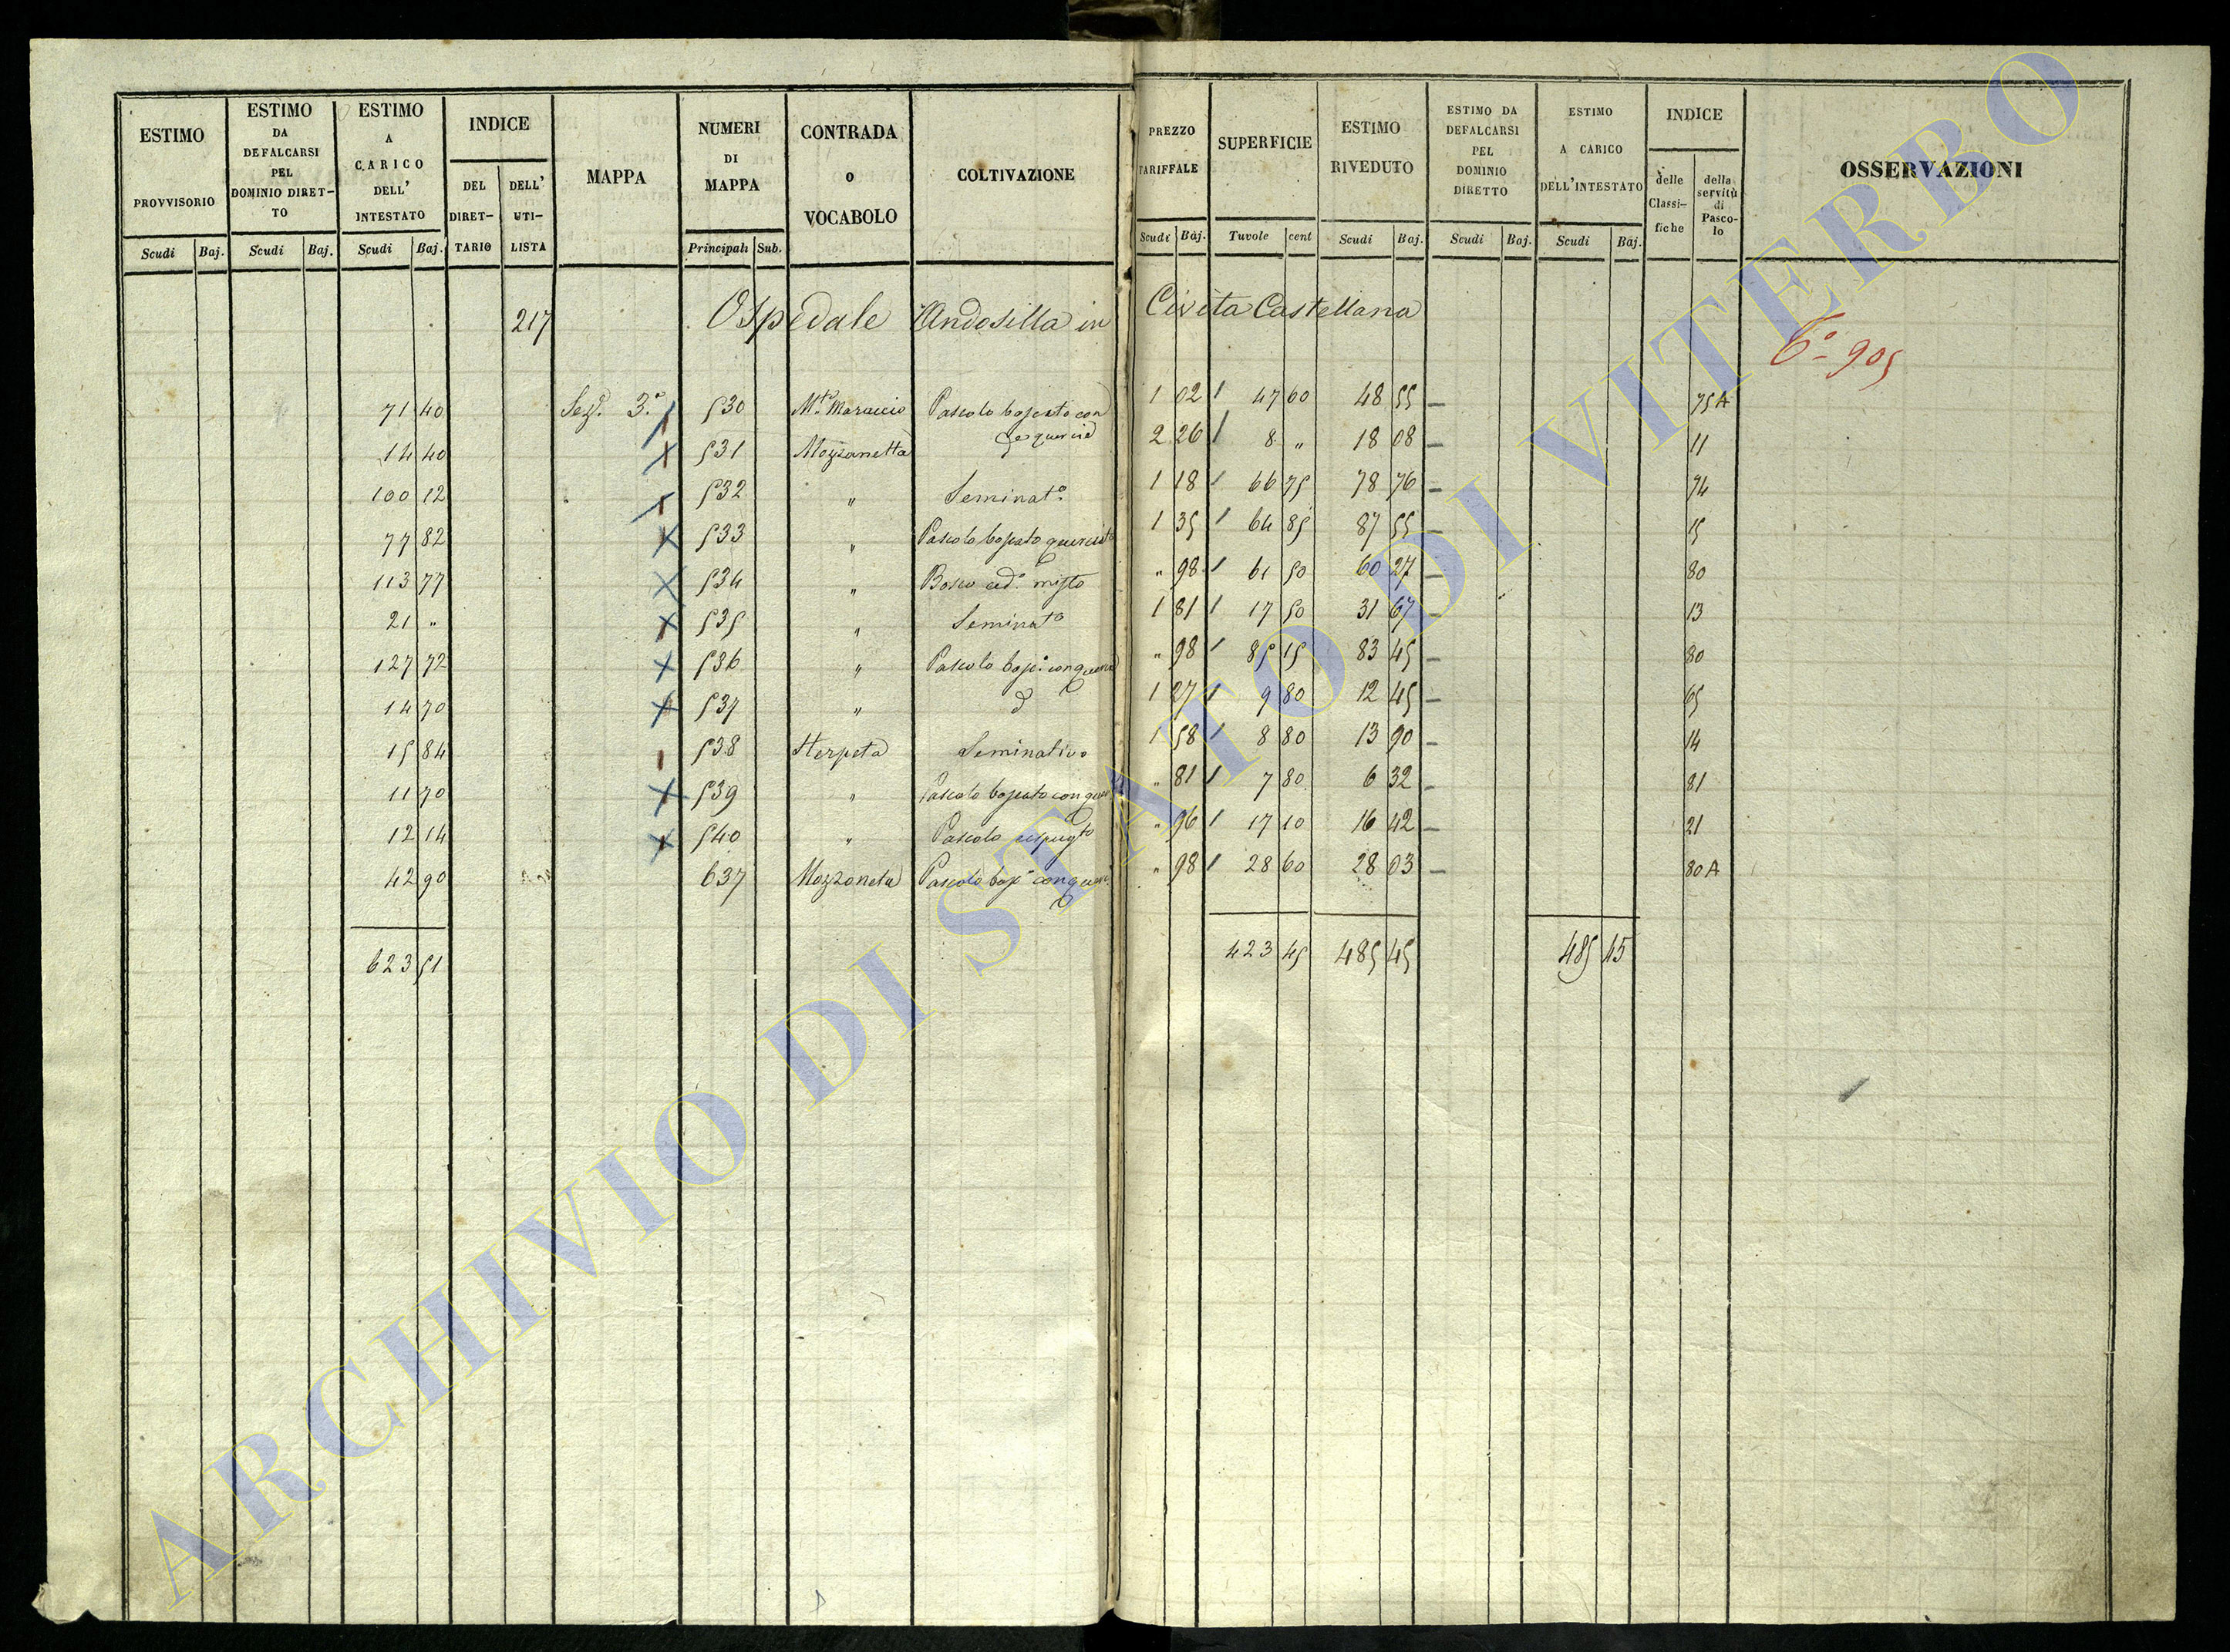 ESTIMO PROVVISORIO Scudi Baj. ESTIMO DA DEFALCARSI PEL DOMINIO DIRETTO Scudi Baj. ESTIMO A CARICO DELL' INTESTATO Scudi Baj. INDICE DEL DIRETTARIO DELL' UTILISTA MAPPA NUMERI DI MAPPA Principali Sub. CONTRADA O VOCABOLO COLTIVAZIONE PREZZO TARIFFALE Scudi Baj. SUPERFICIE Tavole cent ESTIMO RIVEDUTO Scudi Baj. ESTIMO DA DEFALCARSI PEL DOMINIO DIRETTO Scudi Baj. ESTIMO A CARICO DELL'INTESTATO Scudi Baj. INDICE delle Classifiche della servitù di Pascolo OSSERVAZIONI
217 Ospedale Andosilla in Civita Castellana
6° 905
71 40 Sezᵉ. 3.ª 530 Mᵗᵉ Maraccio Pascolo boscato con quercie 1 02 47 60 48 55 — 75A
14 40 531 Mozzanetta 2 26 8 „ 18 08 — 11
100 12 532 „ Seminatᵒ 1 18 66 75 78 76 — 74
77 82 533 „ Pascolo boscato querciato 1 35 64 85 87 55 — 15
113 77 534 „ Bosco cedᵒ misto „ 98 61 50 60 27 — 80
21 „ 535 „ Seminatᵒ 1 81 17 50 31 67 — 13
127 72 536 „ Pascolo bosᵒ con „ 98 85 15 83 45 — 80
14 70 537 „ d 1 27 9 80 12 45 — 65
15 84 538 Sterpeta Seminativo 1 58 8 80 13 90 — 14
11 70 539 „ Pascolo boscato con „ 81 7 80 6 32 — 81
12 14 540 „ Pascolo cespugᵗᵒ „ 96 17 10 16 42 — 21
42 90 637 Mozzaneta Pascolo bosᵒ con „ 98 28 60 28 03 — 80A
623 51 423 45 485 45 485 45
ARCHIVIO DI STATO DI VITERBO